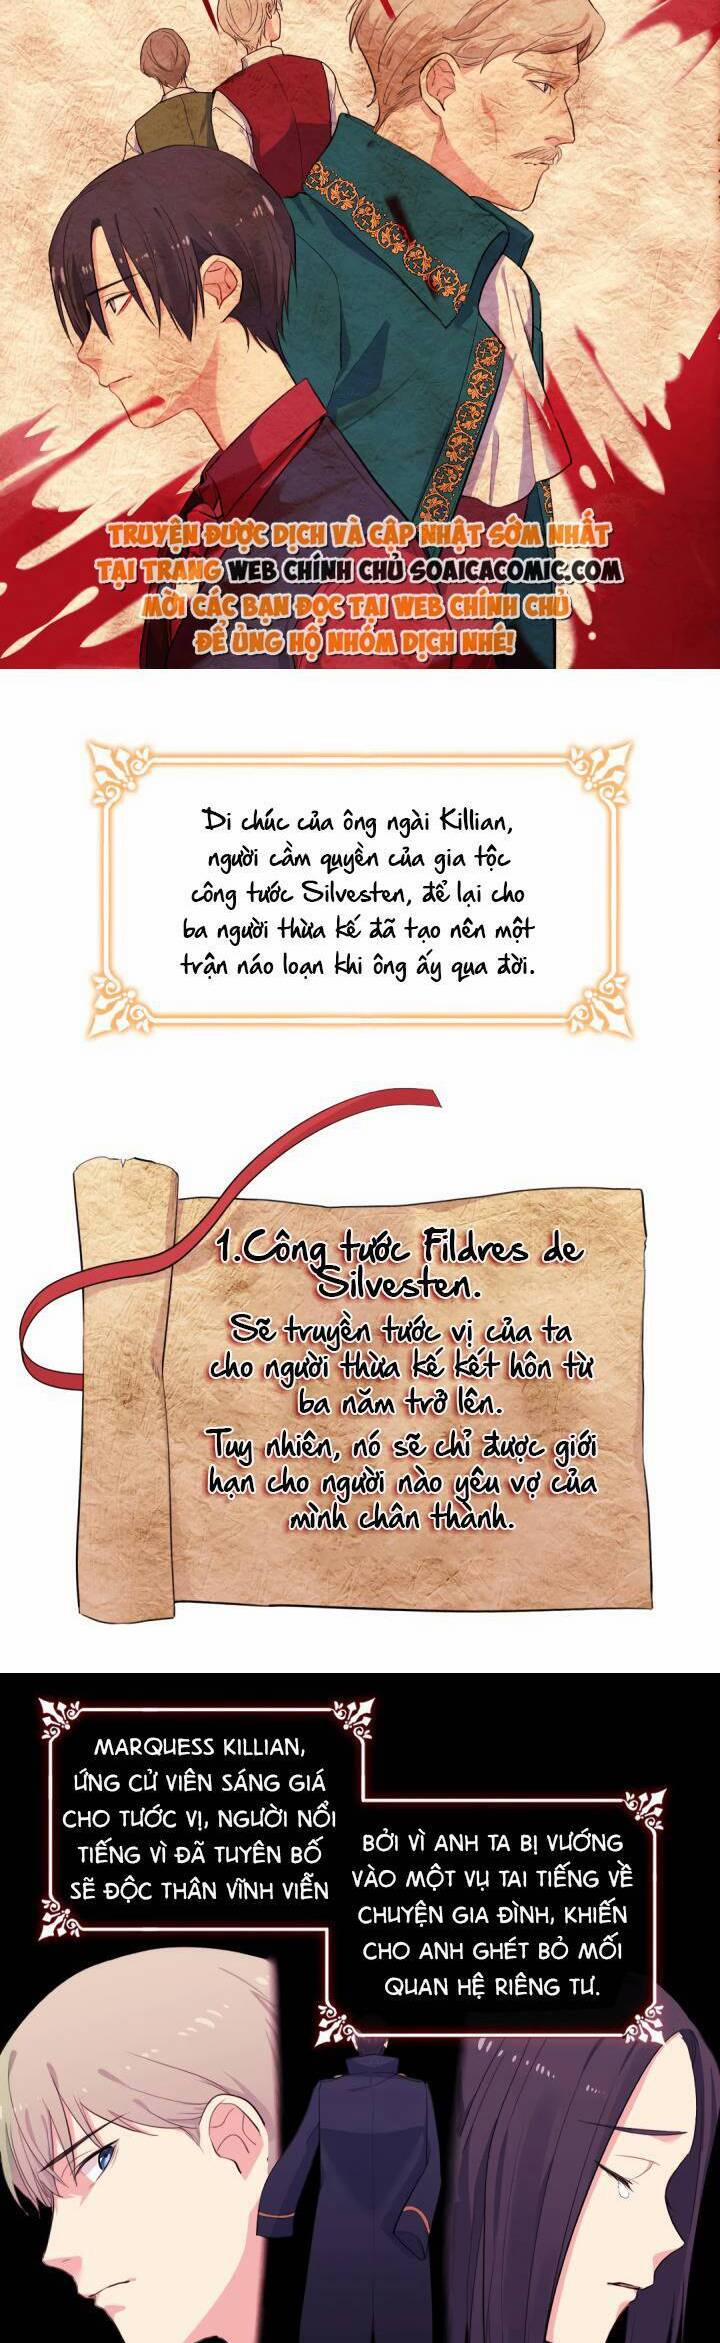 TRUYỆN ĐƯỢC DỊCH VÀ CẬP NHẬT SỚM NHẤT
TẠI TRANG WEB CHÍNH CHỦ SOAICACOMIC.COM
MỜI CÁC BẠN ĐỌC TẠI WEB CHÍNH CHỦ
ĐỂ ỦNG HỘ NHÓM DỊCH NHÉ!
Di chúc của ông ngài Killian,
người cầm quyền của gia tộc
công tước Silvesten, để lại cho
ba người thừa kế đã tạo nên một
trận náo loạn khi ông ấy qua đời.
1.Công tước Fildres de
Silvesten.
Sẽ truyền tước vị của ta
cho người thừa kế kết hôn từ
ba năm trở lên.
Tuy nhiên, nó sẽ chỉ được giới
hạn cho người nào yêu vợ của
mình chân thành.
MARQUESS KILLIAN,
ỨNG CỬ VIÊN SÁNG GIÁ
CHO TƯỚC VỊ, NGƯỜI NỔI
TIẾNG VÌ ĐÃ TUYÊN BỐ
SẼ ĐỘC THÂN VĨNH VIỄN
BỞI VÌ ANH TA BỊ VƯỚNG
VÀO MỘT VỤ TAI TIẾNG VỀ
CHUYỆN GIA ĐÌNH, KHIẾN
CHO ANH GHÉT BỎ MỐI
QUAN HỆ RIÊNG TƯ.